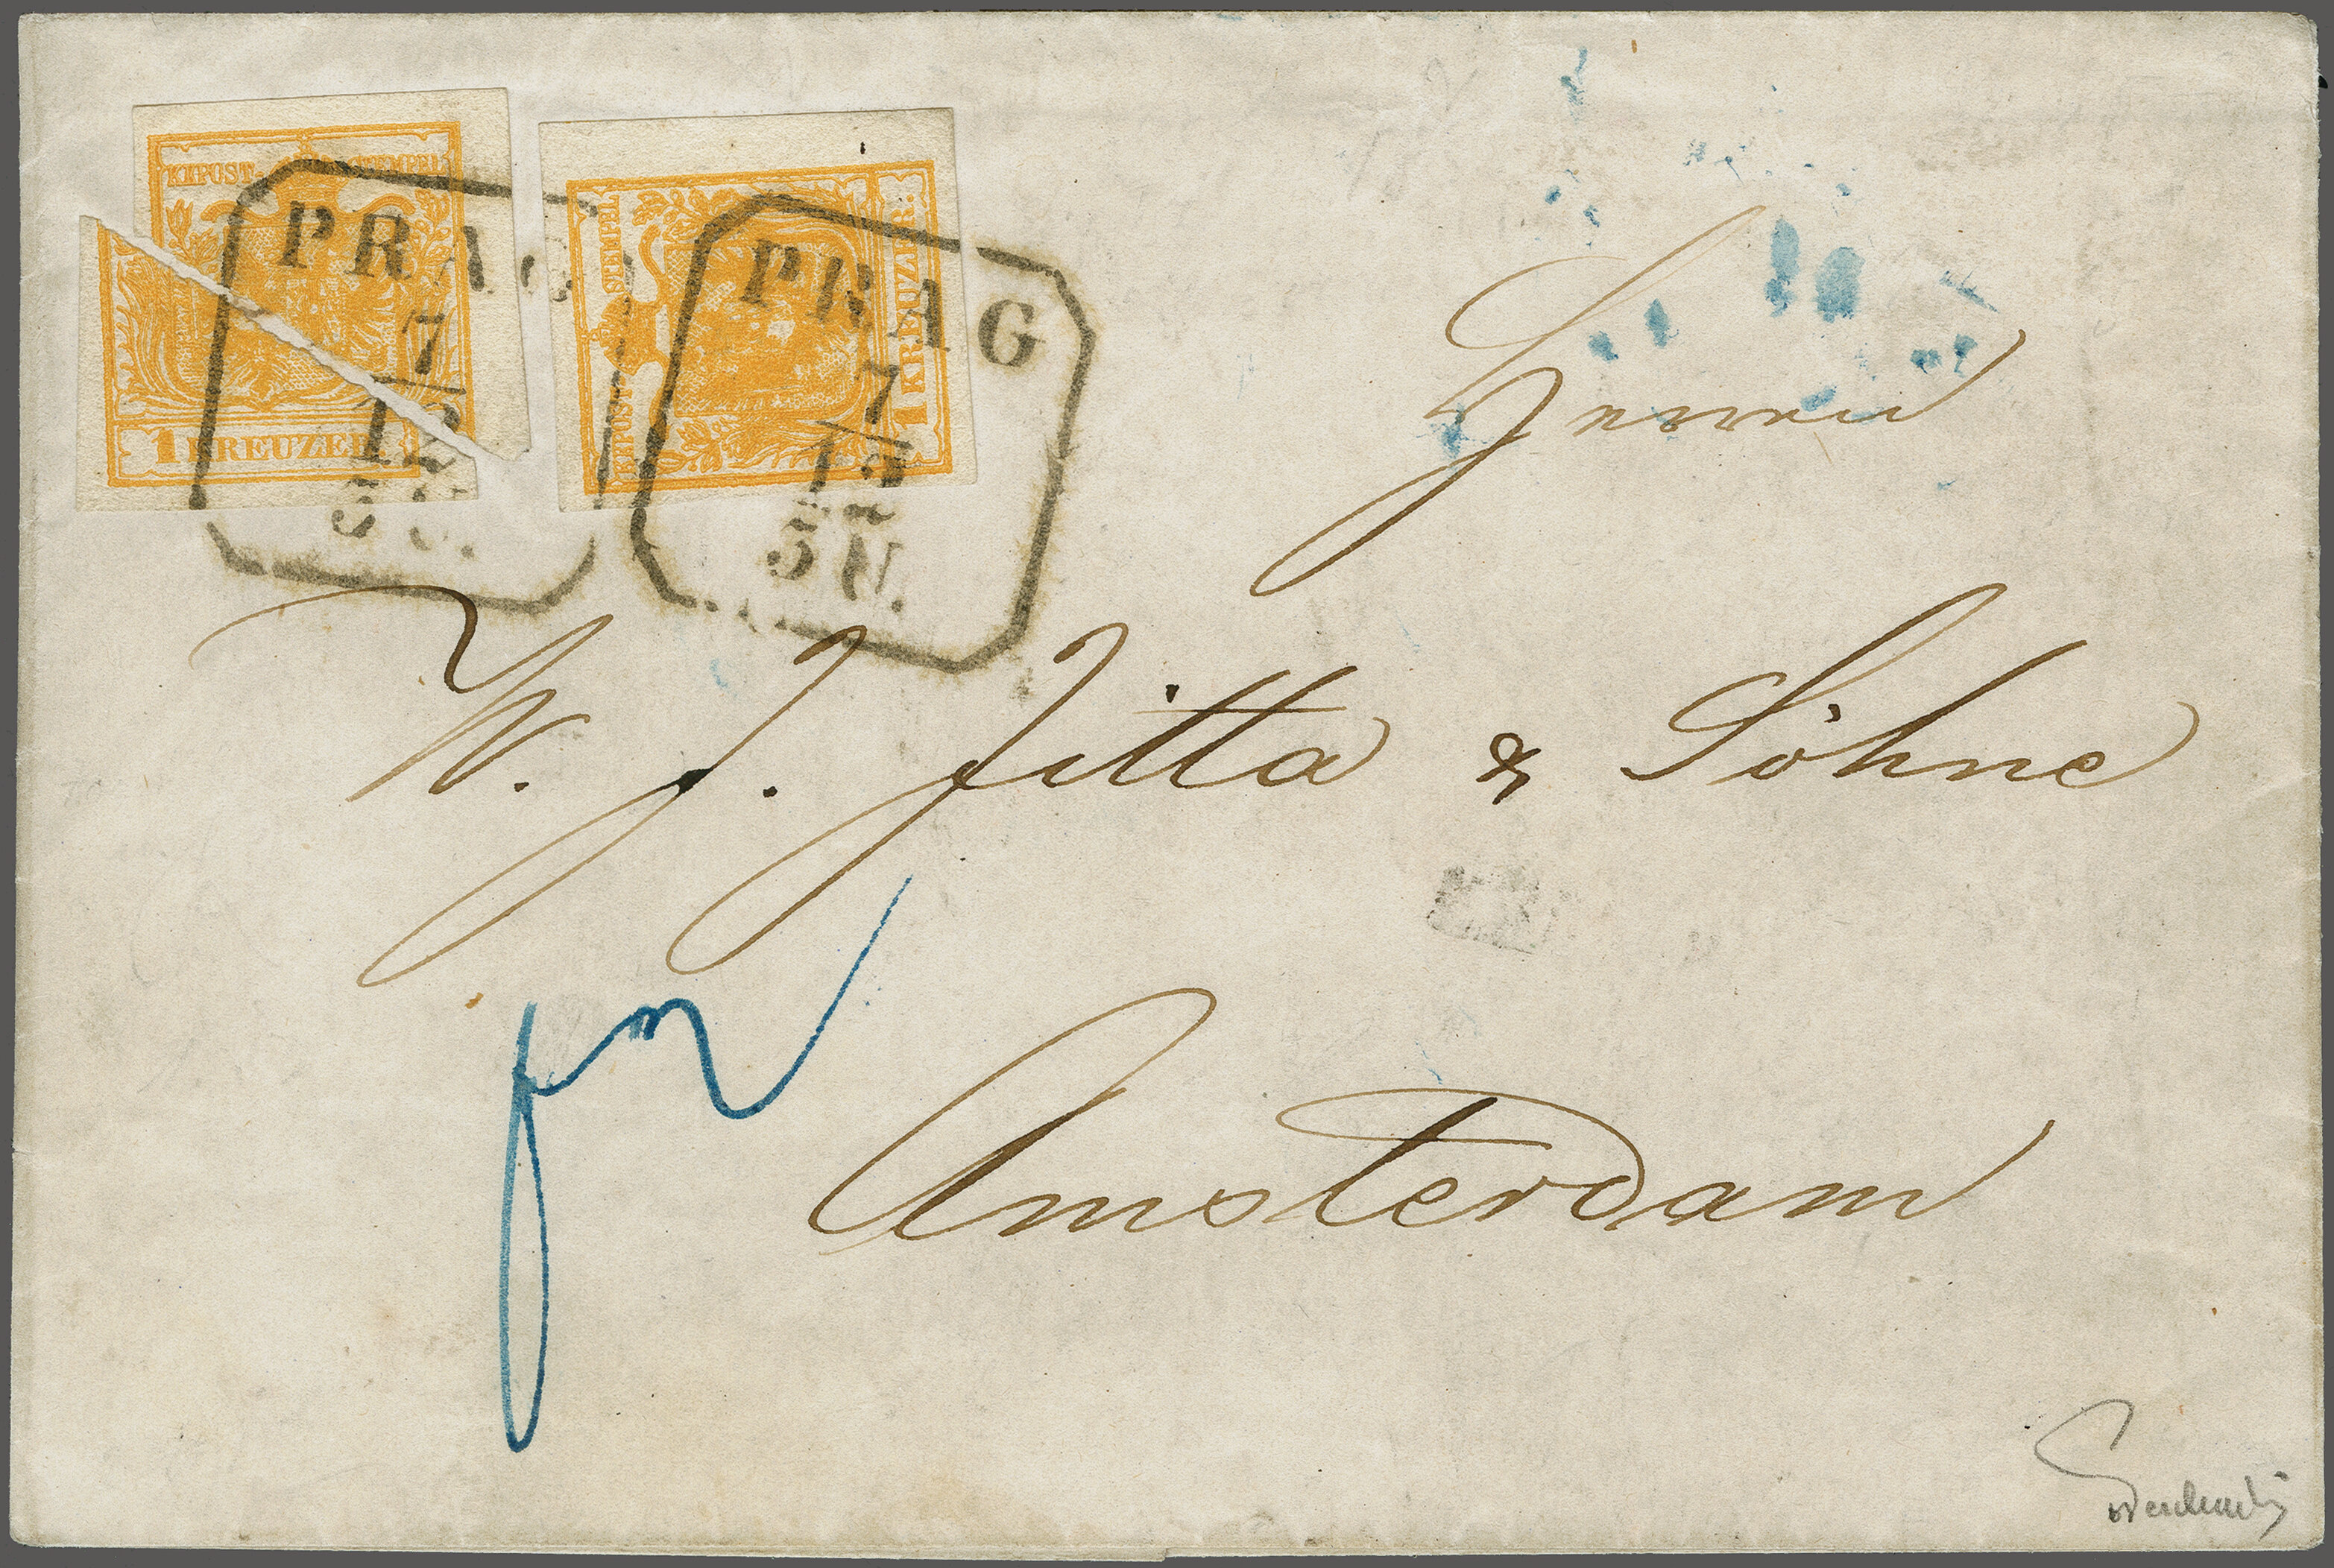 KKPOST-STEMPEL
1 KREUZER.
PRAG
7
12
5 U.
KKPOST-STEMPEL
1 KREUZER.
PRAG
7
12
5 U.
Herren
W. J. Jitta & Söhne
Amsterdam